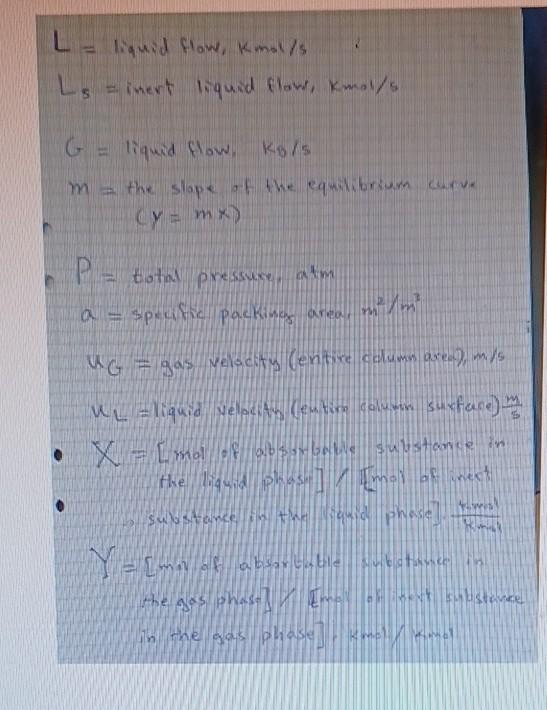 L = liquid flow, Kmol/s
Ls = inert liquid flow, Kmol/s
G = liquid flow, Kg/s
m = the slope of the equilibrium curve
(y = mx)
P = total pressure, atm
a = specific packing area, m²/m³
uG = gas velocity (entire column area), m/s
uL = liquid velocity (entire column surface) m/s
X = [mol of absorbable substance in
the liquid phase] / [mol of inert
substance in the liquid phase], kmol/kmol
Y = [mol of absorbable substance in
the gas phase] / [mol of inert substance
in the gas phase], kmol/kmol